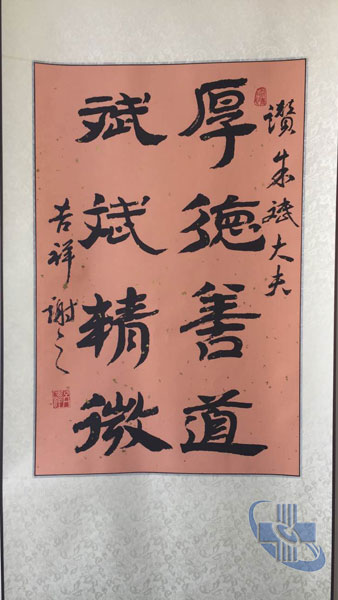 讚朱斌大夫
厚德善道
斌斌精微
吉祥谢之